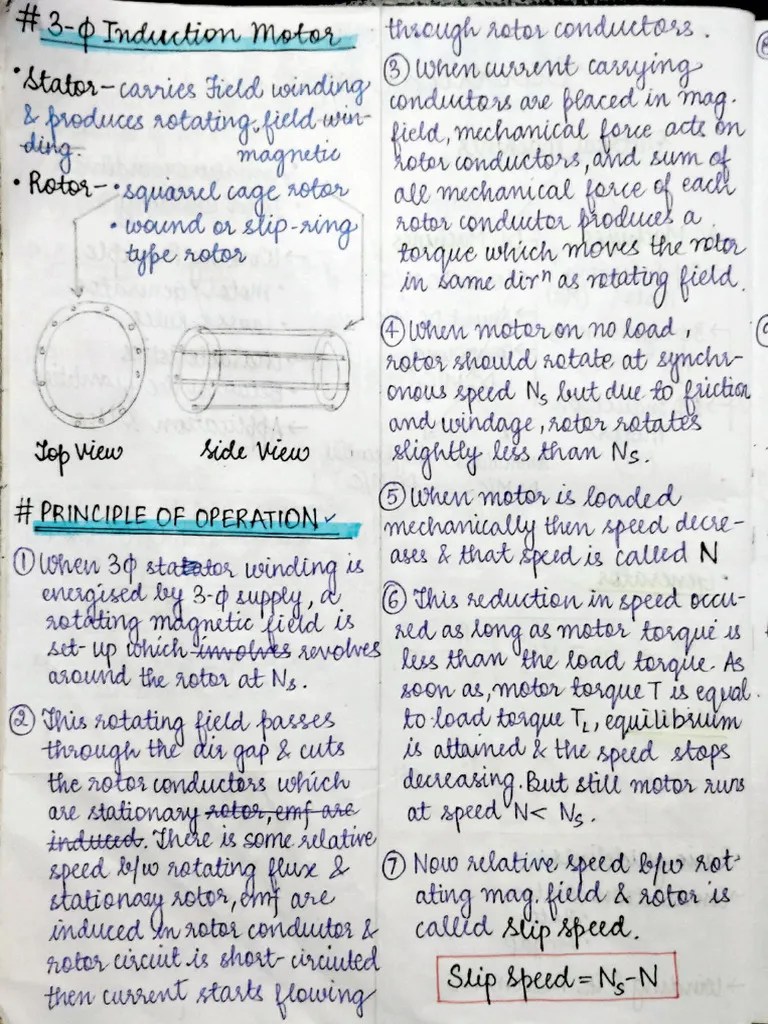 # 3-ϕ Induction Motor
• Stator - carries Field winding
& produces rotating field win-
ding. magnetic
• Rotor - • squarrel cage rotor
• wound or slip-ring
type rotor
Top View Side View
# PRINCIPLE OF OPERATION ✓
① When 3ϕ stator winding is
energised by 3-ϕ supply, a
rotating magnetic field is
set-up which involves revolves
around the rotor at Ns.
② This rotating field passes
through the air gap & cuts
the rotor conductors which
are stationary rotor, emf are
induced. There is some relative
speed b/w rotating flux &
stationary rotor, emf are
induced in rotor conductor &
rotor circuit is short-circuited
then current starts flowing
through rotor conductors.
③ When current carrying
conductors are placed in mag.
field, mechanical force acts on
rotor conductors, and sum of
all mechanical force of each
rotor conductor produces a
torque which moves the rotor
in same dirⁿ as rotating field.
④ When motor on no load,
rotor should rotate at synchr-
onous speed Ns but due to friction
and windage, rotor rotates
slightly less than Ns.
⑤ When motor is loaded
mechanically then speed decre-
ases & that speed is called N
⑥ This reduction in speed occu-
red as long as motor torque is
less than the load torque. As
soon as, motor torque T is equal
to load torque TL, equilibrium
is attained & the speed stops
decreasing. But still motor runs
at speed N < Ns.
⑦ Now relative speed b/w rot-
ating mag. field & rotor is
called slip speed.
Slip Speed = Ns - N